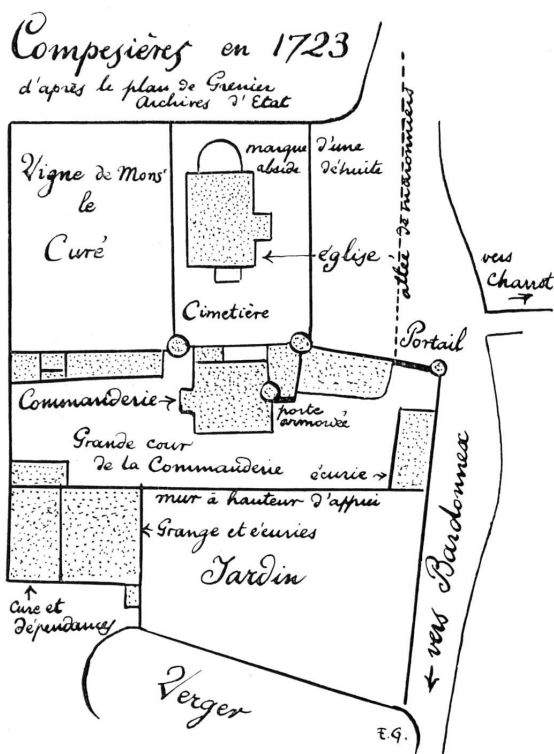 Compesières en 1723
d'après le plan de Grenier
Archives d'Etat
Vigne de Monsr
le
Curé
marque d'une
abside détruite
église
allée de maronniers
vers
Charrot
Cimetière
Portail
Commanderie
porte
armoriée
Grande cour
de la Commanderie
écurie
mur à hauteur d'appui
Grange et écuries
Jardin
vers Bardonnex
Cure et
dépendances
Verger
E.G.